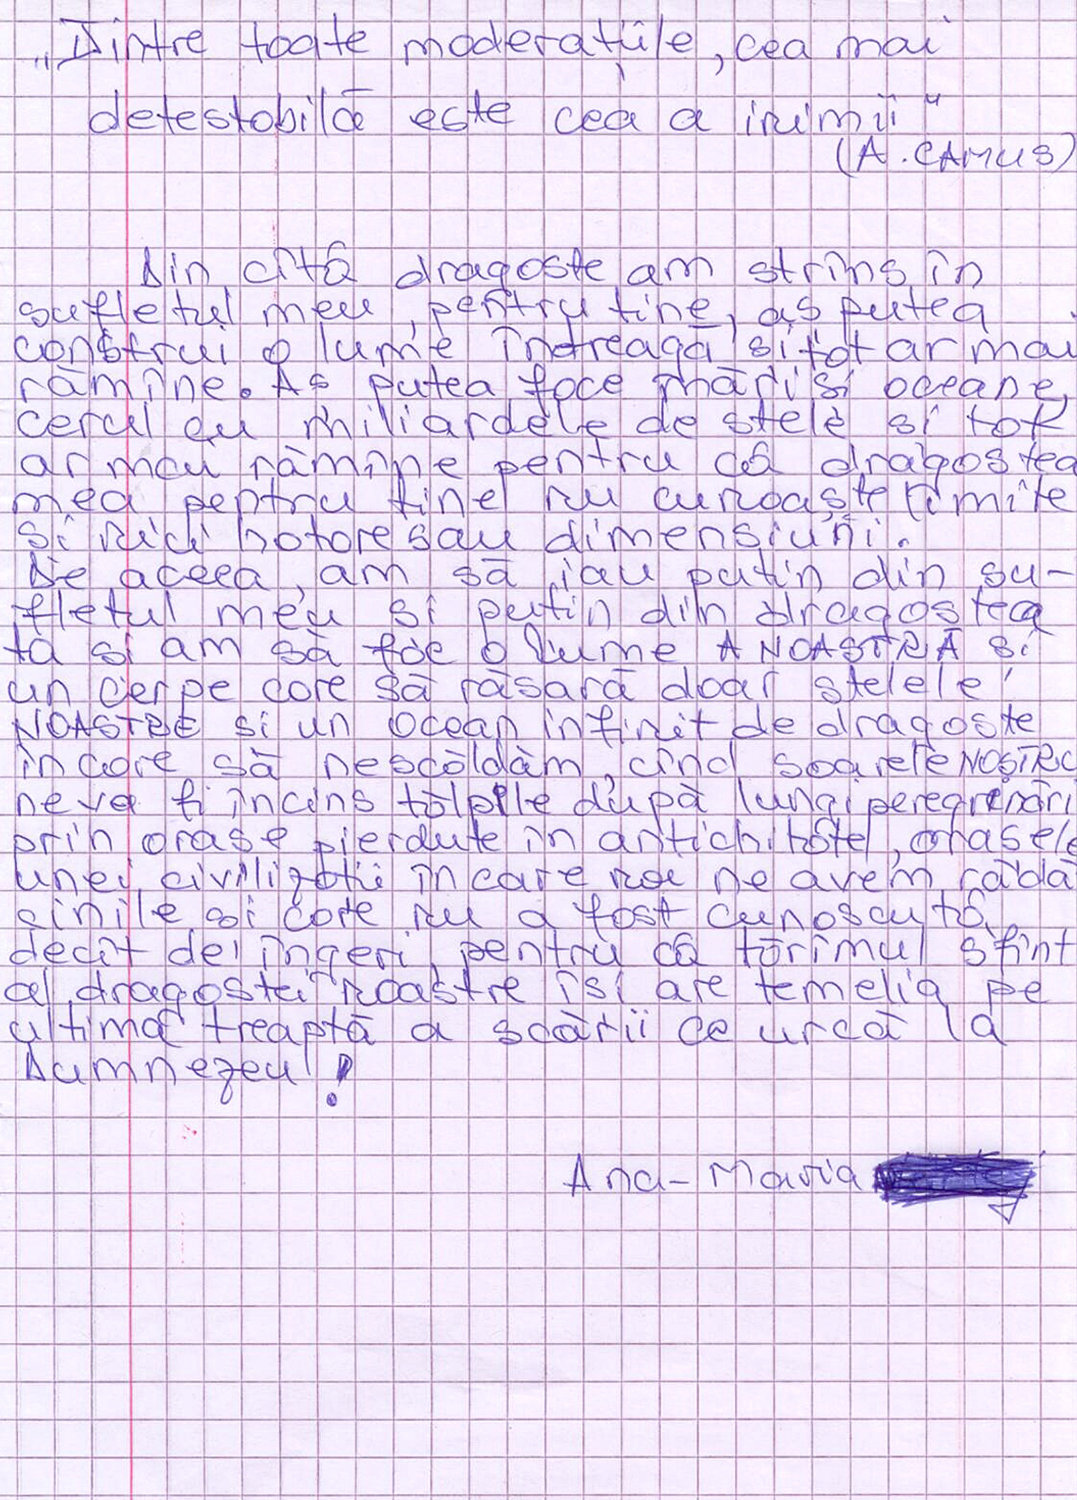 „Dintre toate moderațiile, cea mai
detestabilă este cea a inimii"
(A. CAMUS)
Din cîtă dragoste am strîns în
sufletul meu, pentru tine, aș putea
construi o lume întreagă și tot ar mai
rămîne. Aș putea face mări și oceane,
cerul cu miliardele de stele și tot
ar mai rămîne pentru că dragostea
mea pentru tine nu cunoaște limite
și nici hotare sau dimensiuni.
De aceea, am să iau puțin din su-
fletul meu și puțin din dragostea
ta și am să fac o lume A NOASTRĂ și
un cer pe care să răsară doar stelele
NOASTRE și un ocean infinit de dragoste
în care să ne scăldăm, cînd soarele NOSTRU
ne va fi încins tălpile după lungi peregrinări
prin orașe pierdute în antichitate, orașele
unei civilizații în care noi ne avem rădă
cinile și care nu a fost cunoscută
decît de îngeri, pentru că tărîmul sfînt
al dragostei noastre își are temelia pe
ultima treaptă a scării ce urcă la
Dumnezeu!
Ana-Maria